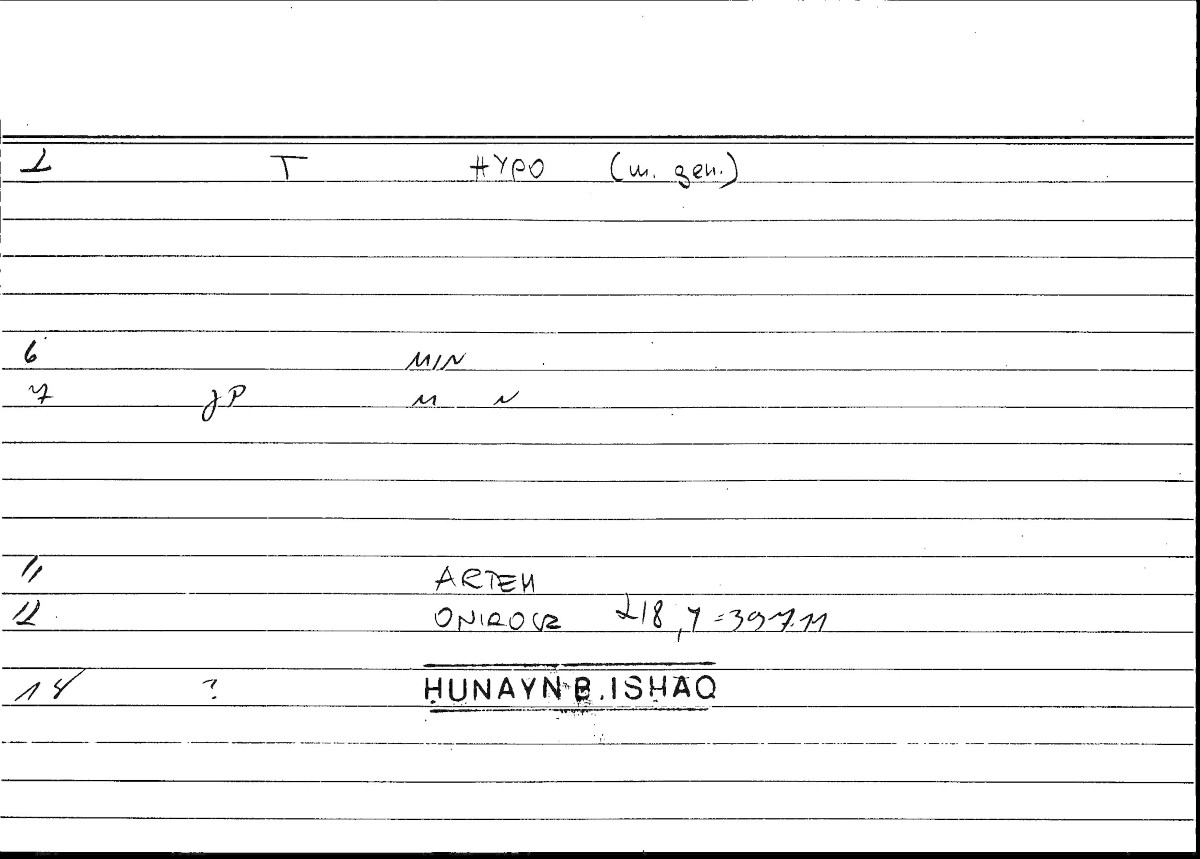 1 T HYPO (m. gen.)
6 MIN
7 JP M N
11 ARTEM
12 ONIROCR 218,7=397.11
14 ? ḤUNAYN B. ISḤAQ